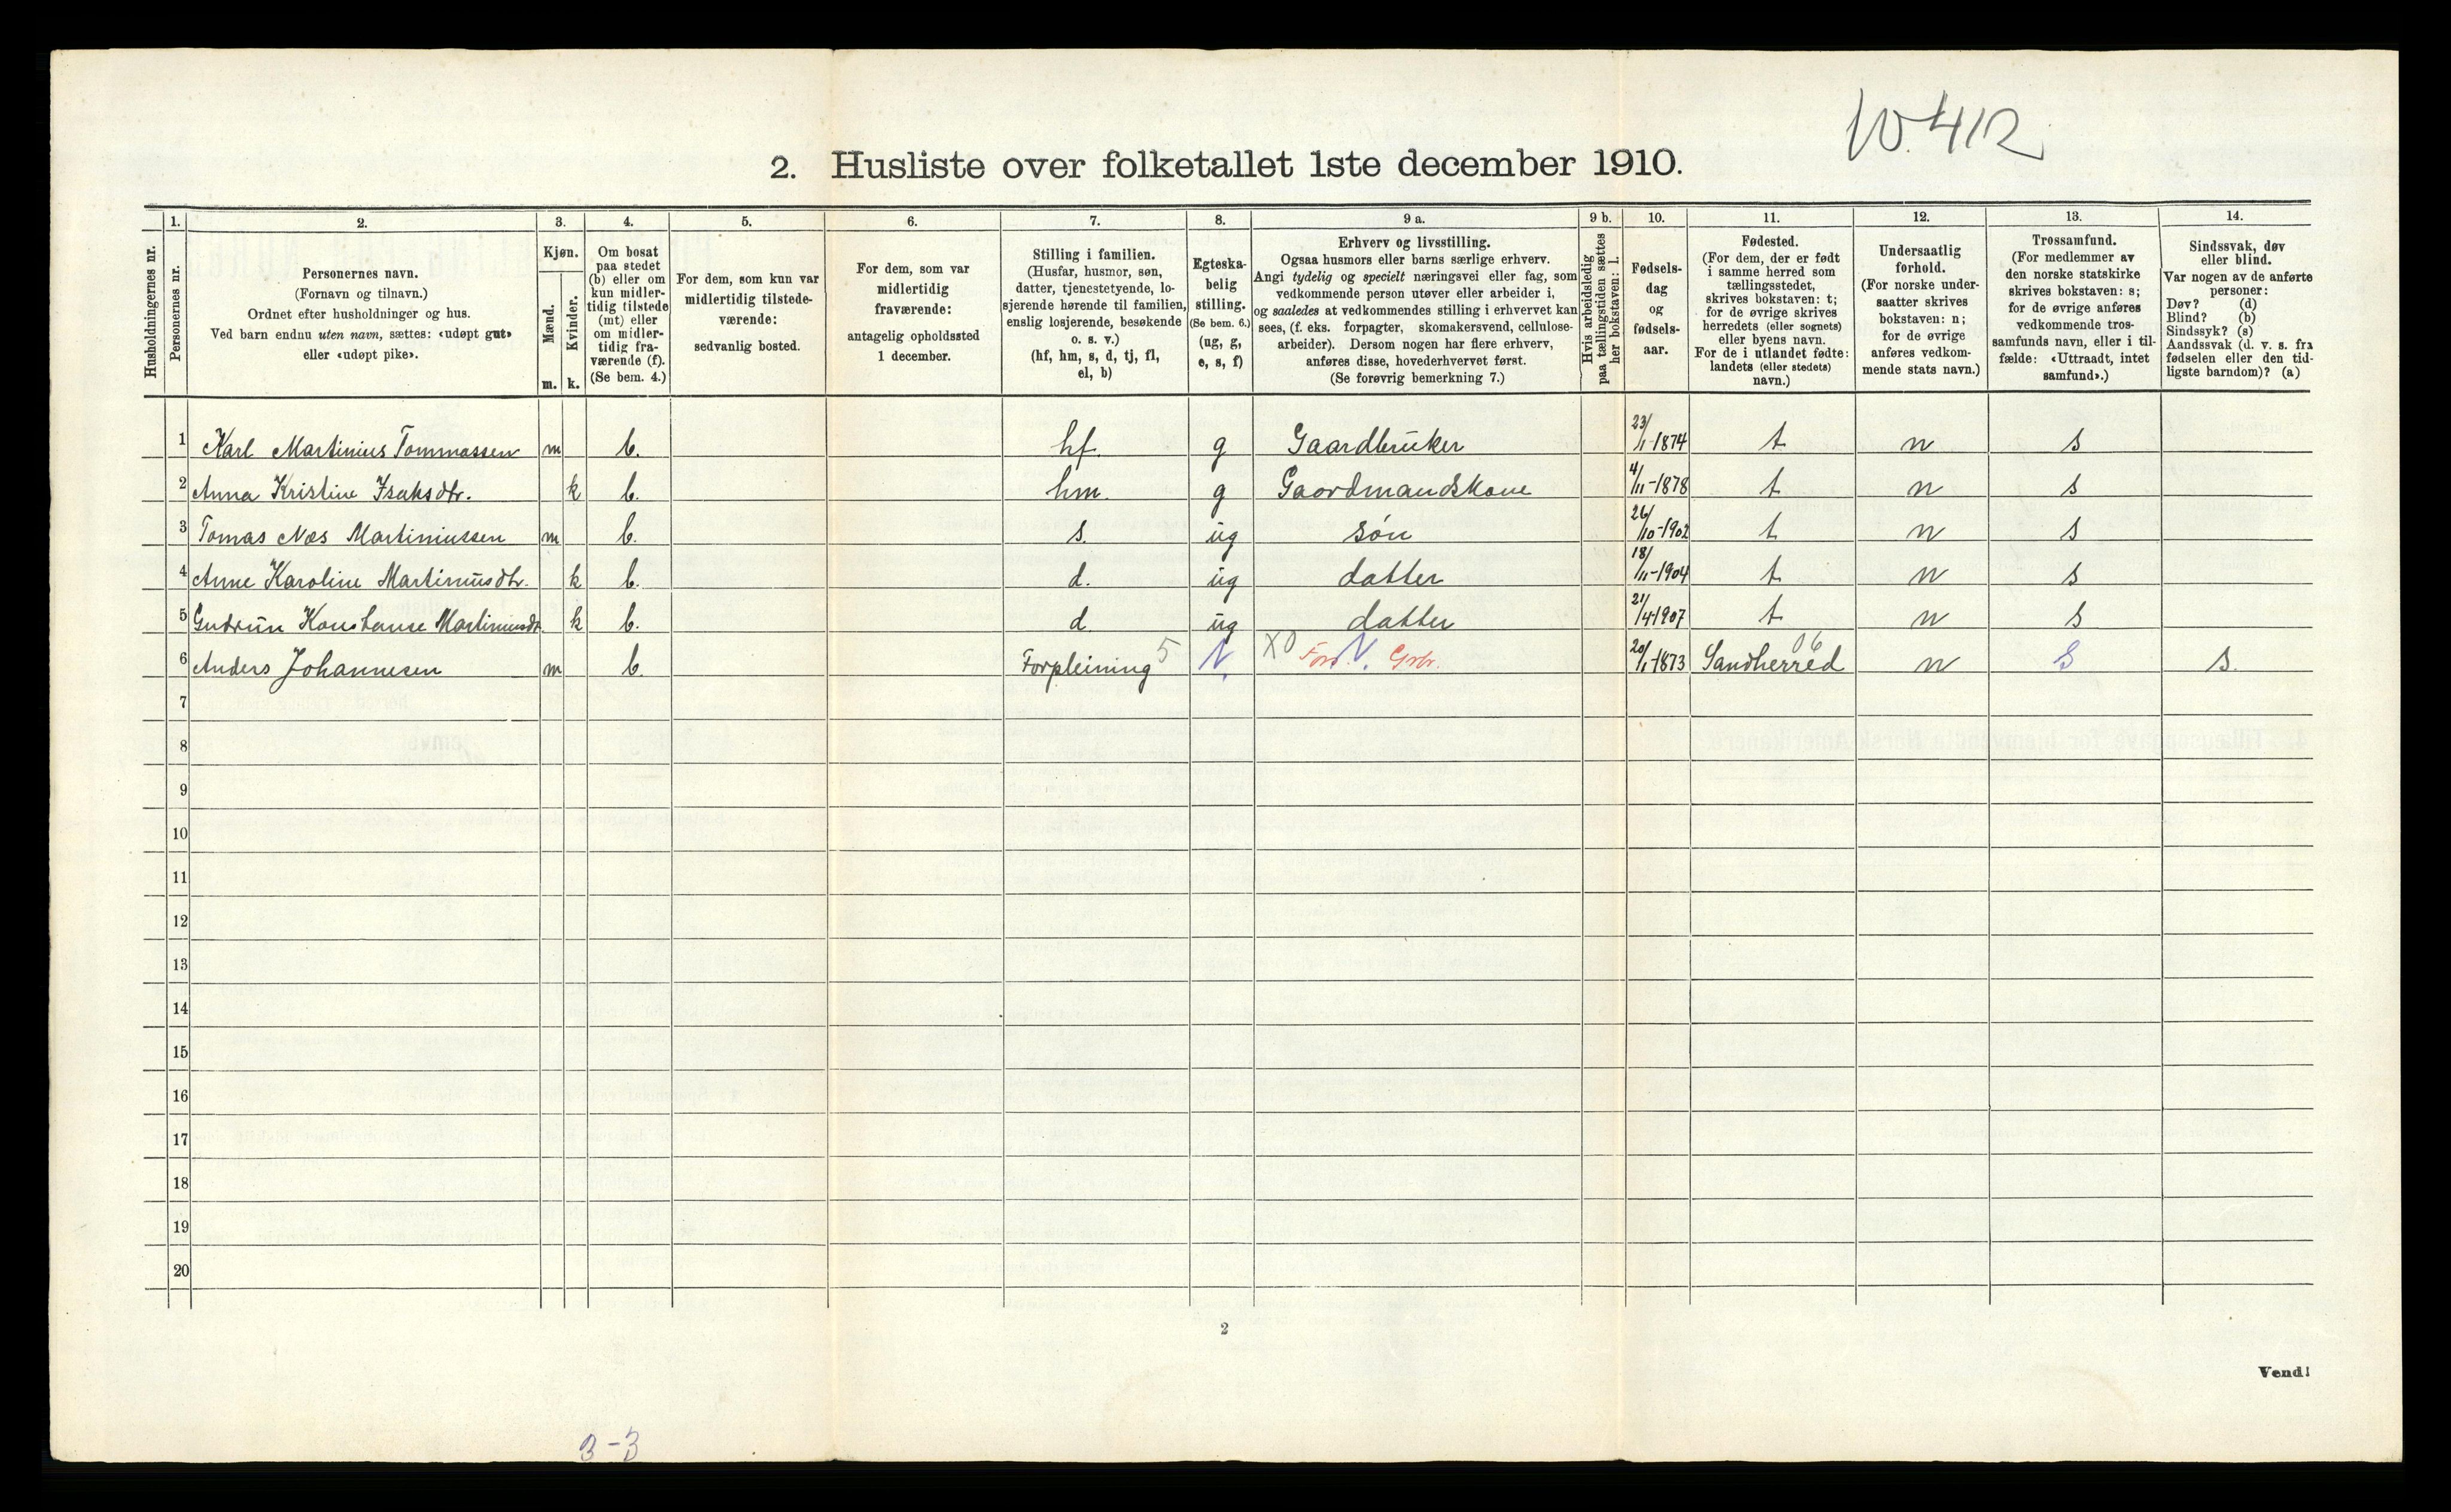 10.412
2. Husliste over folketallet 1ste december 1910.
Husholdningernes nr.
1. Personernes nr.
2. Personernes navn.
(Fornavn og tilnavn.)
Ordnet efter husholdninger og hus.
Ved barn endnu uten navn, sættes: «udøpt gut»
eller «udøpt pike».
3. Kjøn.
Mænd. m.
Kvinder. k.
4. Om bosat
paa stedet
(b) eller om
kun midler-
tidig tilstede
(mt) eller
om midler-
tidig fra-
værende (f).
(Se bem. 4.)
5. For dem, som kun var
midlertidig tilstede-
værende:
sedvanlig bosted.
6. For dem, som var
midlertidig
fraværende:
antagelig opholdssted
1 december.
7. Stilling i familien.
(Husfar, husmor, søn,
datter, tjenestetyende, lo-
sjerende hørende til familien,
enslig losjerende, besøkende
o. s. v.)
(hf, hm, s, d, tj, fl,
el, b)
8. Egteska-
belig
stilling.
(Se bem. 6.)
(ug, g,
e, s, f)
9 a. Erhverv og livsstilling.
Ogsaa husmors eller barns særlige erhverv.
Angi tydelig og specielt næringsvei eller fag, som
vedkommende person utøver eller arbeider i,
og saaledes at vedkommendes stilling i erhvervet kan
sees, (f. eks. forpagter, skomakersvend, cellulose-
arbeider). Dersom nogen har flere erhverv,
anføres disse, hovederhvervet først.
(Se forøvrig bemerkning 7.)
9 b. Hvis arbeidsledig
paa tællingstiden sættes
her bokstaven: l.
10. Fødsels-
dag
og
fødsels-
aar.
11. Fødested.
(For dem, der er født
i samme herred som
tællingsstedet,
skrives bokstaven: t;
for de øvrige skrives
herredets (eller sognets)
eller byens navn.
For de i utlandet fødte:
landets (eller stedets)
navn.)
12. Undersaatlig
forhold.
(For norske under-
saatter skrives
bokstaven: n;
for de øvrige
anføres vedkom-
mende stats navn.)
13. Trossamfund.
(For medlemmer av
den norske statskirke
skrives bokstaven: s;
for de øvrige anføres
vedkommende tros-
samfunds navn, eller i til-
fælde: «Uttraadt, intet
samfund».)
14. Sindssvak, døv
eller blind.
Var nogen av de anførte
personer:
Døv? (d)
Blind? (b)
Sindssyk? (s)
Aandssvak (d. v. s. fra
fødselen eller den tid-
ligste barndom)? (a)
1 Karl Martinius Tommassen m b. hf. g Gaardbruker 23/1-1874 t n s
2 Anna Kristine Isaksdtr. k b. hm. g Gaardmandskone 4/11-1878 t n s
3 Tomas Næs Martiniussen m b. s. ug søn 26/10-1902 t n s
4 Anne Karoline Martiniusdtr. k b. d. ug datter 18/11-1904 t n s
5 Gudrun Konstanse Martiniusdtr. k b. d. ug datter 21/4 1907 t n s
6 Anders Johannesen m b. Forpleining 5 N. X0 N. Grbr. 20/1-1873 Sandherred 06 n S s.
7
8
9
10
11
12
13
14
15
16
17
18
19
20
2
Vend!
3-3